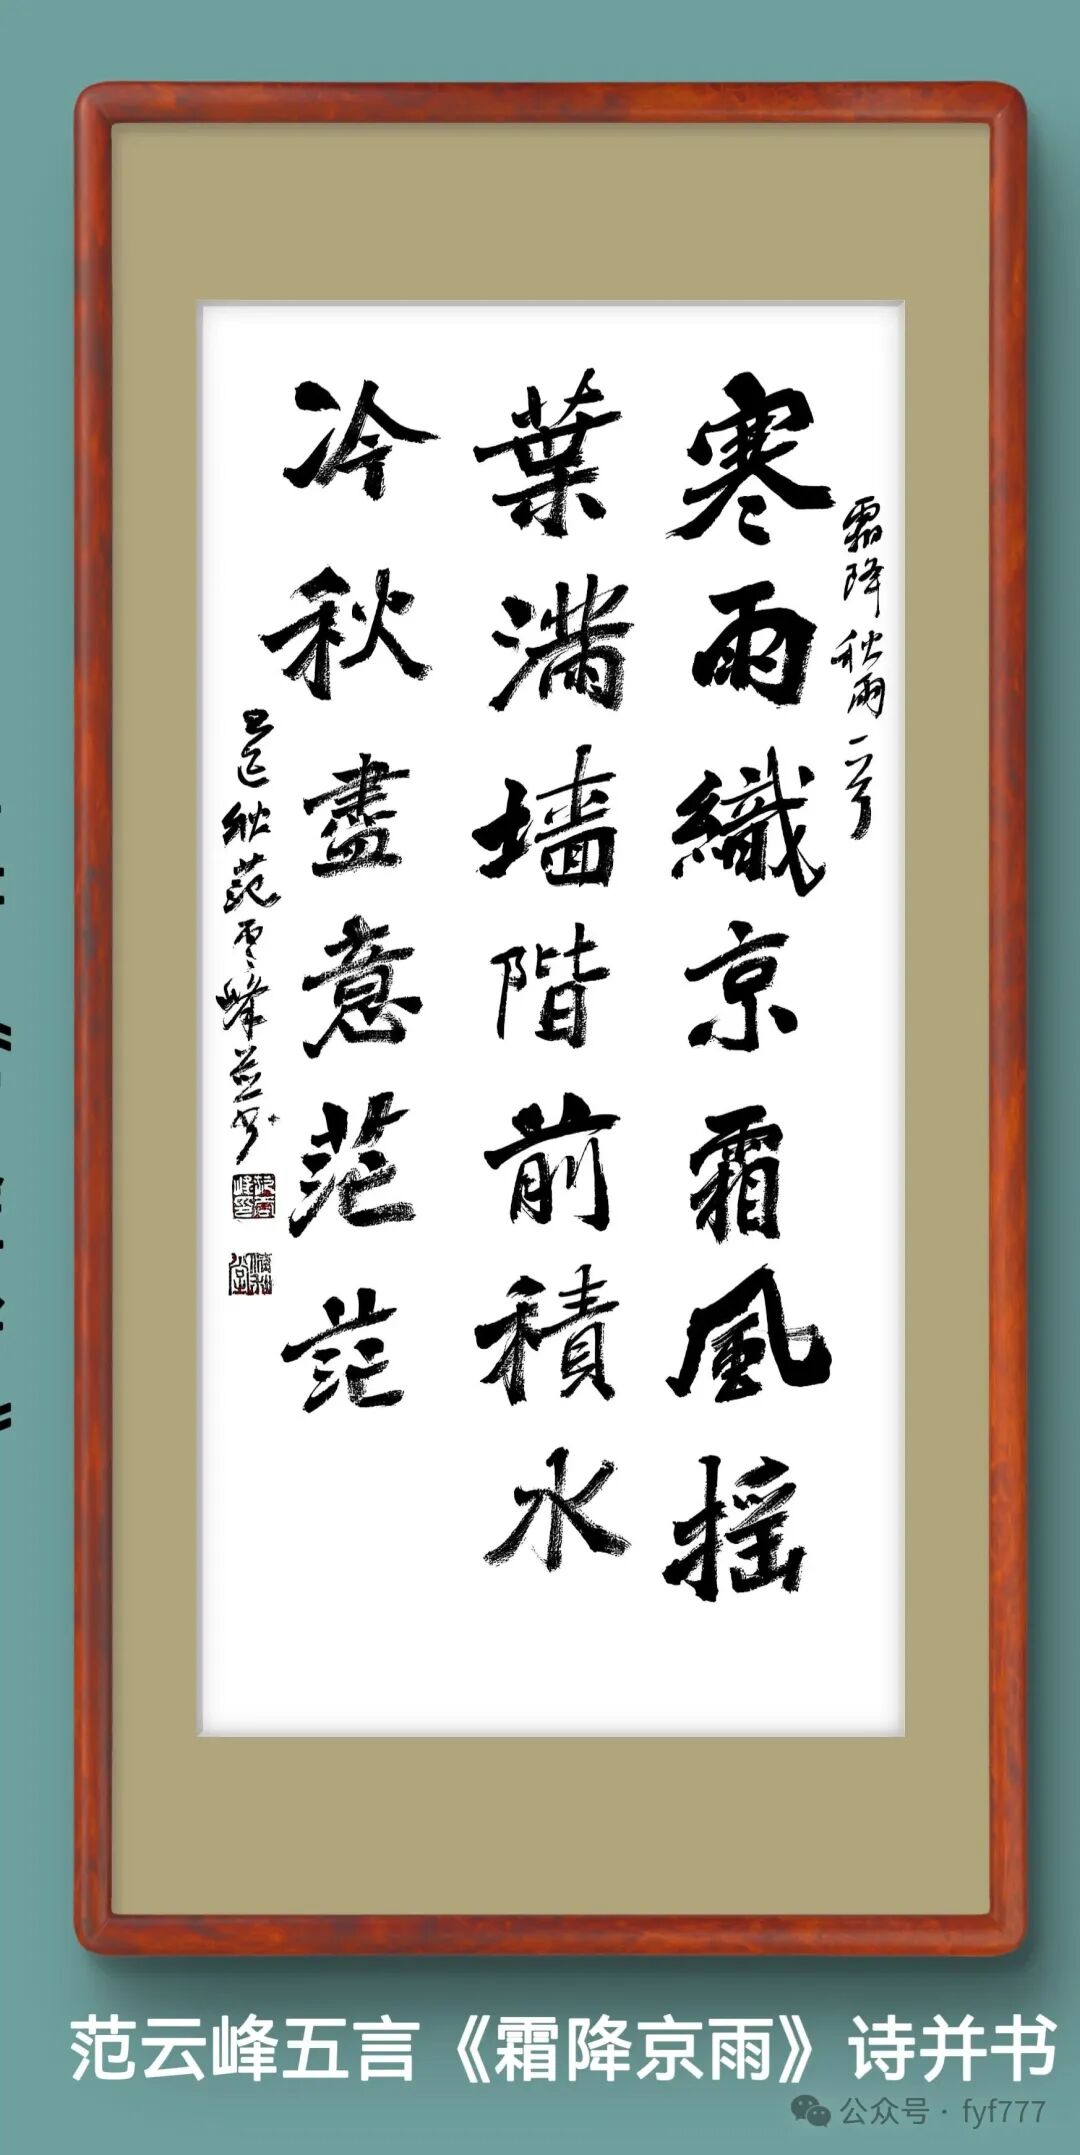 霜降秋雨一首
寒雨織京霜風摇
葉满墙階前積水
冷秋盡意茫茫
乙巳秋范雲峰並书
范云峰五言《霜降京雨》诗并书
公众号·fyf777